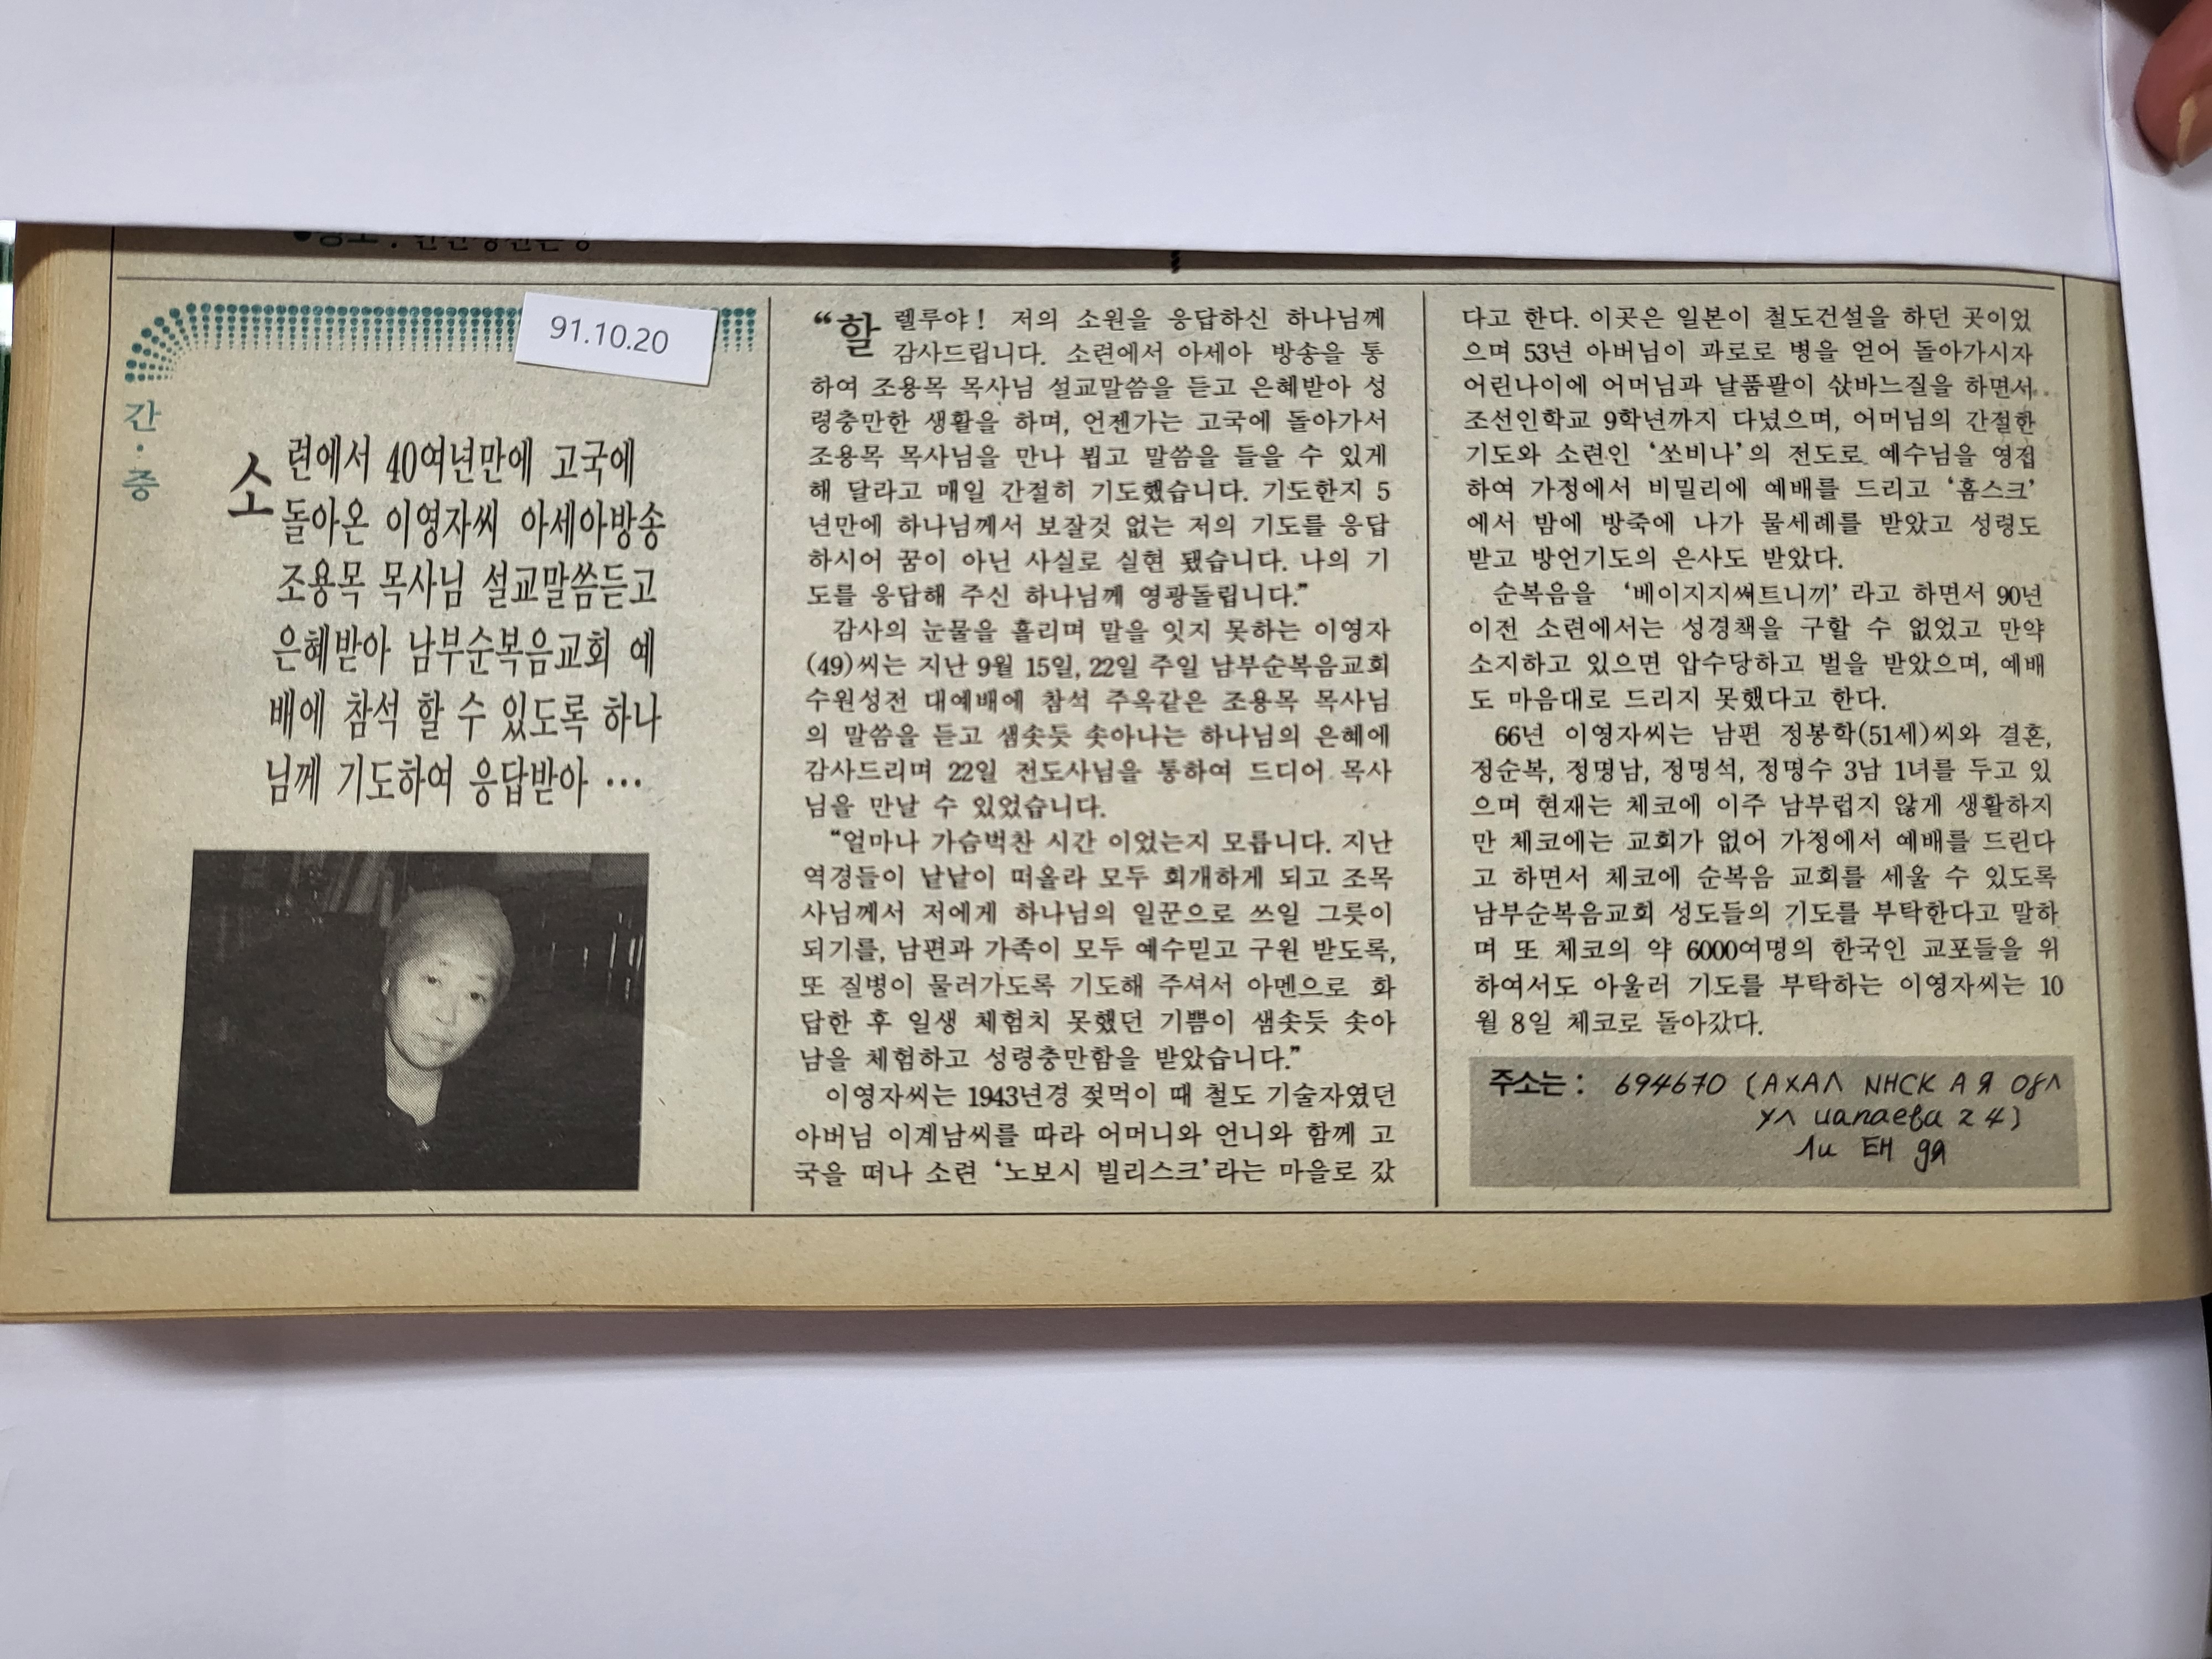 91.10.20
간·증
소련에서 40여년만에 고국에
돌아온 이영자씨 아세아방송
조용목 목사님 설교말씀듣고
은혜받아 남부순복음교회 예
배에 참석 할 수 있도록 하나
님께 기도하여 응답받아 …
“할렐루야! 저의 소원을 응답하신 하나님께
감사드립니다. 소련에서 아세아 방송을 통
하여 조용목 목사님 설교말씀을 듣고 은혜받아 성
령충만한 생활을 하며, 언젠가는 고국에 돌아가서
조용목 목사님을 만나 뵙고 말씀을 들을 수 있게
해 달라고 매일 간절히 기도했습니다. 기도한지 5
년만에 하나님께서 보잘것 없는 저의 기도를 응답
하시어 꿈이 아닌 사실로 실현 됐습니다. 나의 기
도를 응답해 주신 하나님께 영광돌립니다.”
감사의 눈물을 흘리며 말을 잇지 못하는 이영자
(49)씨는 지난 9월 15일, 22일 주일 남부순복음교회
수원성전 대예배에 참석 주옥같은 조용목 목사님
의 말씀을 듣고 샘솟듯 솟아나는 하나님의 은혜에
감사드리며 22일 전도사님을 통하여 드디어 목사
님을 만날 수 있었습니다.
“얼마나 가슴벅찬 시간 이었는지 모릅니다. 지난
역경들이 낱낱이 떠올라 모두 회개하게 되고 조목
사님께서 저에게 하나님의 일꾼으로 쓰일 그릇이
되기를, 남편과 가족이 모두 예수믿고 구원 받도록,
또 질병이 물러가도록 기도해 주셔서 아멘으로 화
답한 후 일생 체험치 못했던 기쁨이 샘솟듯 솟아
남을 체험하고 성령충만함을 받았습니다.”
이영자씨는 1943년경 젖먹이 때 철도 기술자였던
아버님 이계남씨를 따라 어머니와 언니와 함께 고
국을 떠나 소련 ‘노보시 빌리스크’라는 마을로 갔
다고 한다. 이곳은 일본이 철도건설을 하던 곳이었
으며 53년 아버님이 과로로 병을 얻어 돌아가시자
어린나이에 어머님과 날품팔이 삯바느질을 하면서
조선인학교 9학년까지 다녔으며, 어머님의 간절한
기도와 소련인 ‘쏘비나’의 전도로 예수님을 영접
하여 가정에서 비밀리에 예배를 드리고 ‘홈스크’
에서 밤에 방죽에 나가 물세례를 받았고 성령도
받고 방언기도의 은사도 받았다.
순복음을 ‘베이지지써트니끼’라고 하면서 90년
이전 소련에서는 성경책을 구할 수 없었고 만약
소지하고 있으면 압수당하고 벌을 받았으며, 예배
도 마음대로 드리지 못했다고 한다.
66년 이영자씨는 남편 정봉학(51세)씨와 결혼,
정순복, 정명남, 정명석, 정명수 3남 1녀를 두고 있
으며 현재는 체코에 이주 남부럽지 않게 생활하지
만 체코에는 교회가 없어 가정에서 예배를 드린다
고 하면서 체코에 순복음 교회를 세울 수 있도록
남부순복음교회 성도들의 기도를 부탁한다고 말하
며 또 체코의 약 6000여명의 한국인 교포들을 위
하여서도 아울러 기도를 부탁하는 이영자씨는 10
월 8일 체코로 돌아갔다.
주소는 : 694670